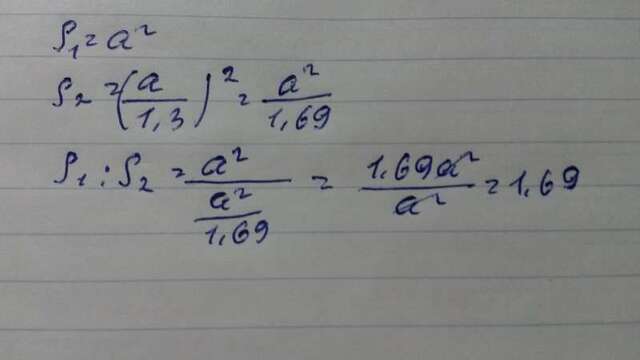 S₁ = a²
S₂ = (a/1,3)² = a²/1,69
S₁ : S₂ = a²/(a²/1,69) = 1,69a²/a² = 1,69